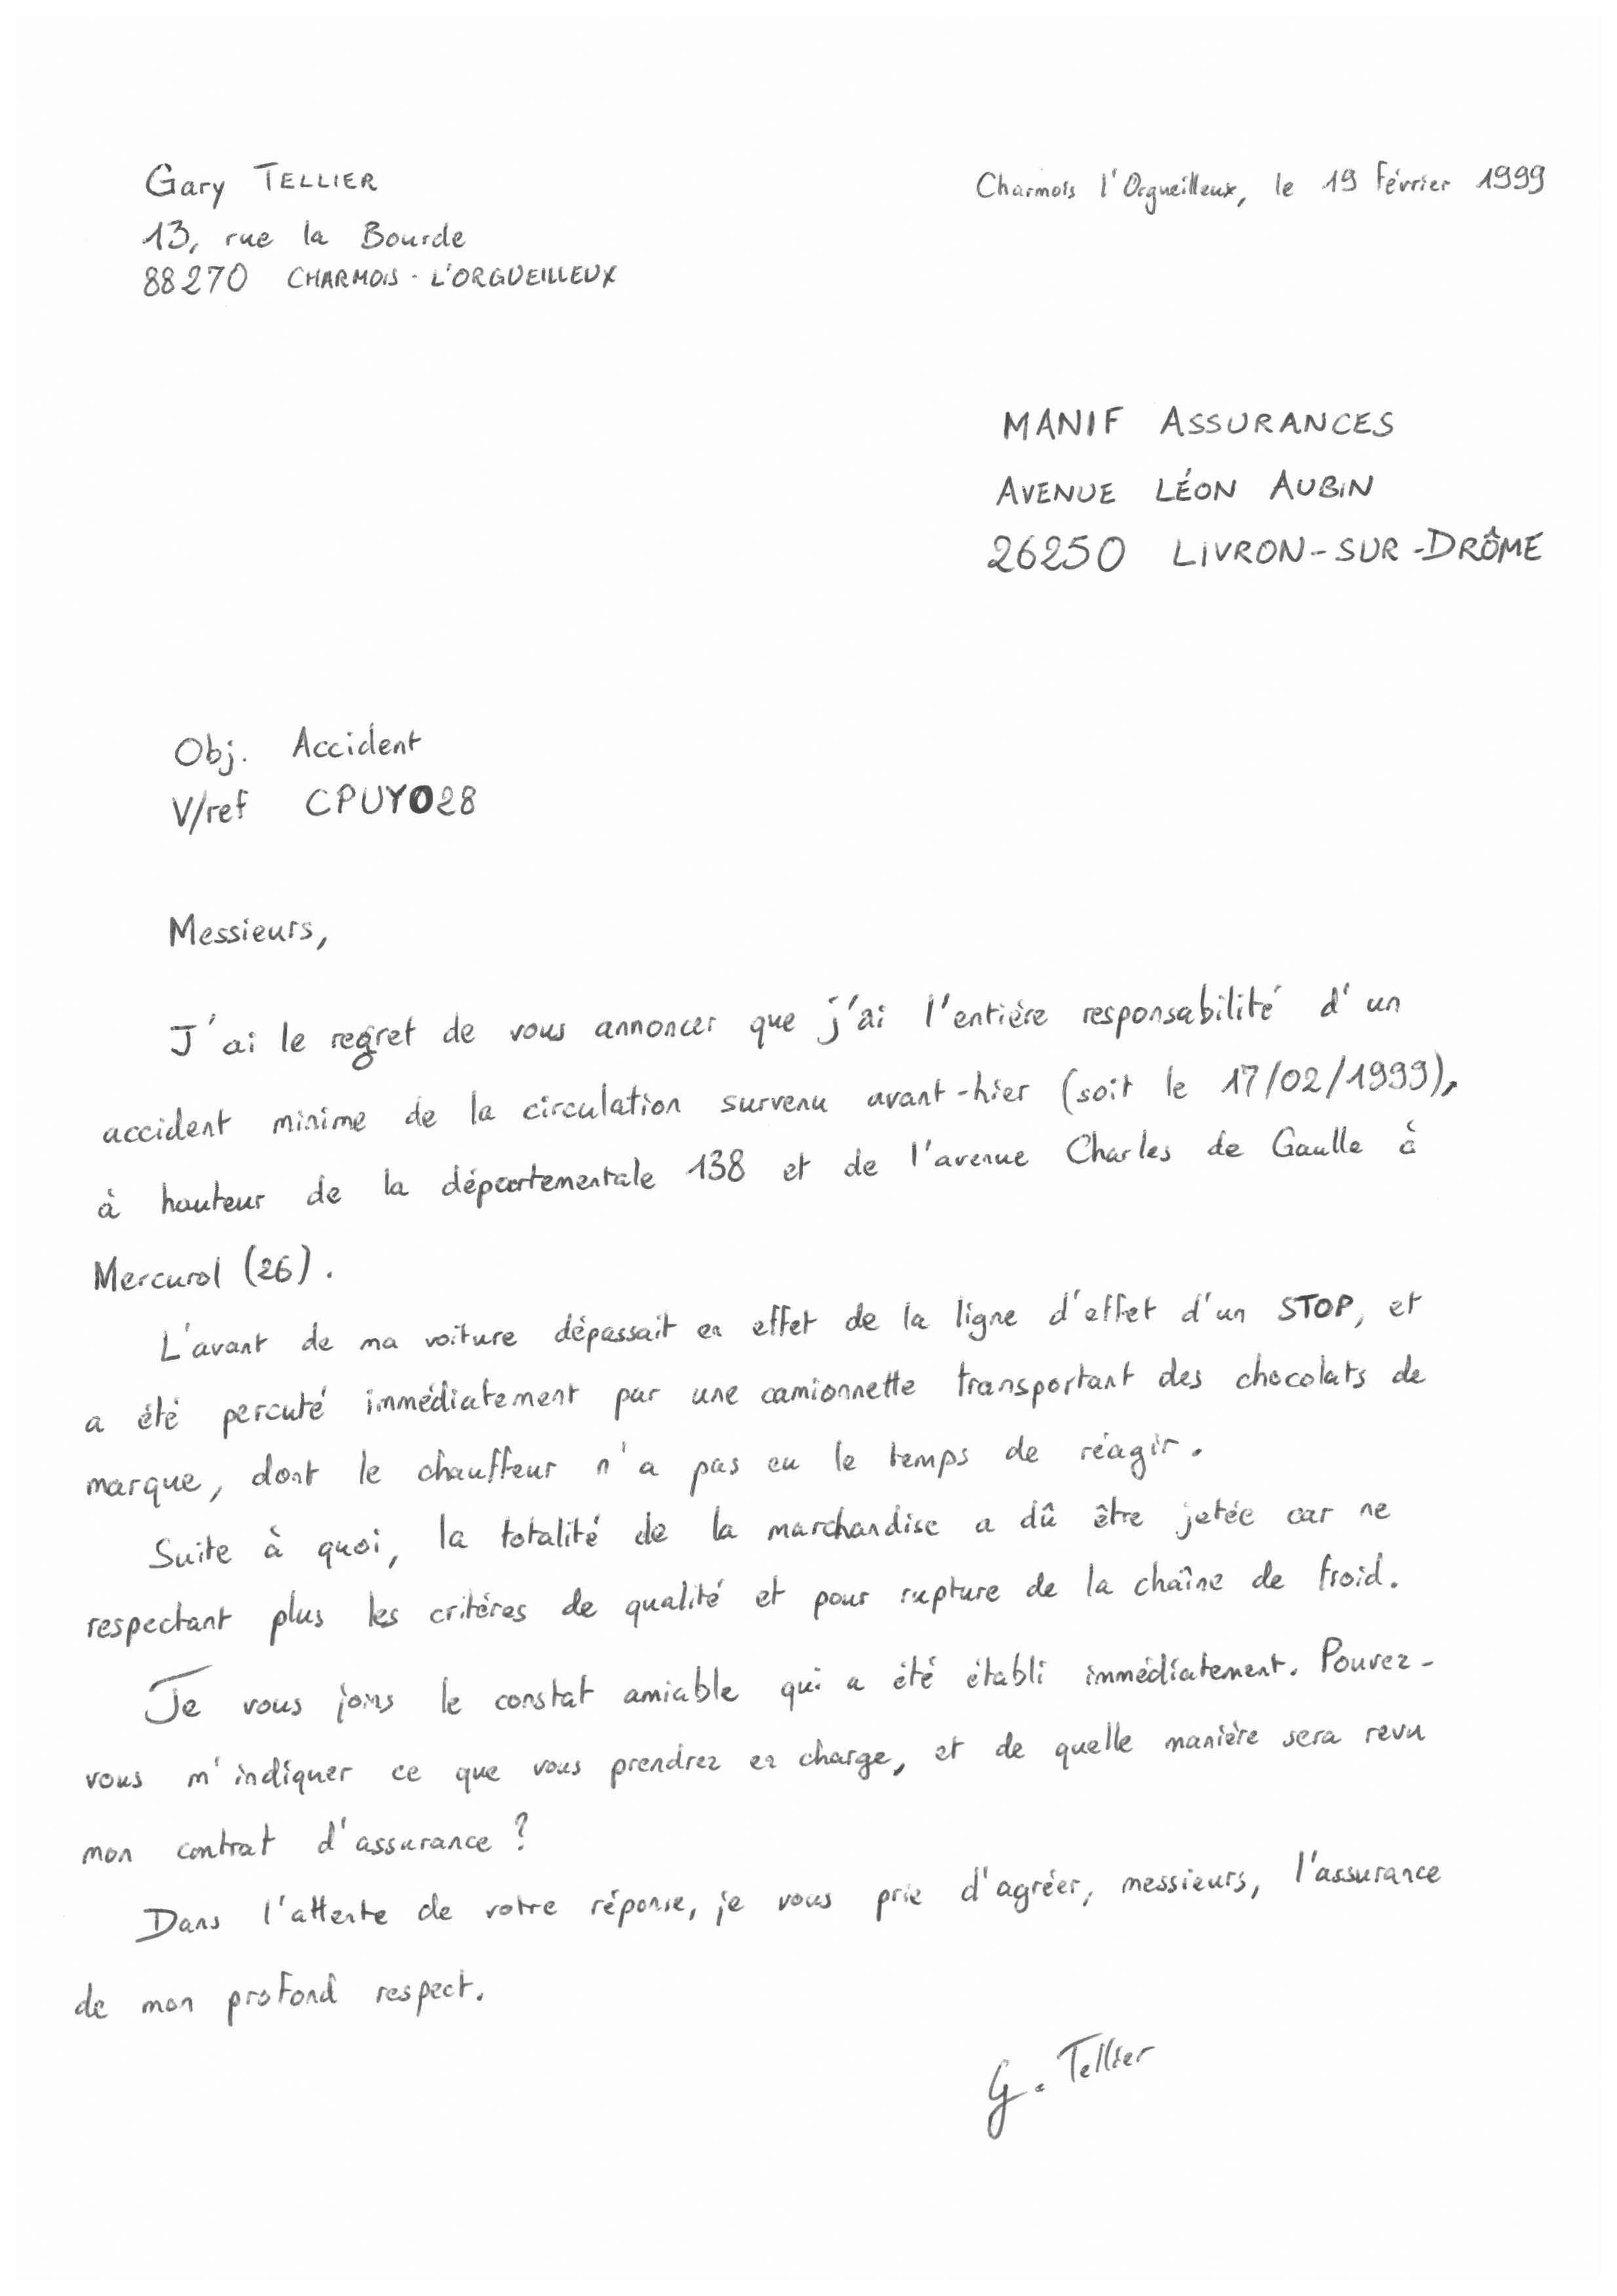 Gary TELLIER
Charmois l'Orgueilleux, le 19 février 1999
13, rue la Bourde
88270 CHARMOIS - L'ORGUEILLEUX
MANIF ASSURANCES
AVENUE LÉON AUBIN
26250 LIVRON-SUR-DRÔME
Obj. Accident
V/ref CPUYO28
Messieurs,
J'ai le regret de vous annoncer que j'ai l'entière responsabilité d'un
accident minime de la circulation survenu avant-hier (soit le 17/02/1999),
à hauteur de la départementale 138 et de l'avenue Charles de Gaulle à
Mercurol (26).
L'avant de ma voiture dépassait en effet de la ligne d'effet d'un STOP, et
a été percuté immédiatement par une camionnette transportant des chocolats de
marque, dont le chauffeur n'a pas eu le temps de réagir.
Suite à quoi, la totalité de la marchandise a dû être jetée car ne
respectant plus les critères de qualité et pour rupture de la chaîne de froid.
Je vous joins le constat amiable qui a été établi immédiatement. Pouvez-
vous m'indiquer ce que vous prendrez en charge, et de quelle manière sera revu
mon contrat d'assurance ?
Dans l'attente de votre réponse, je vous prie d'agréer, messieurs, l'assurance
de mon profond respect.
G. Tellier